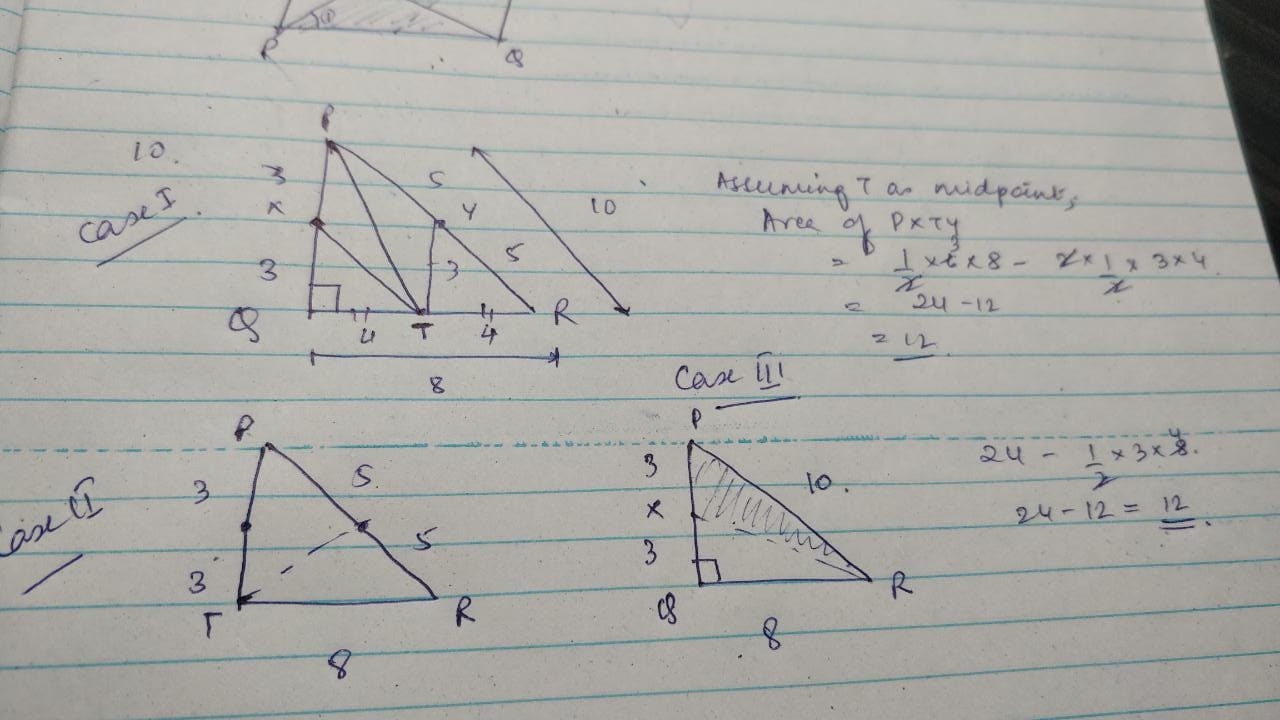 P
Q
10.
Case I.
P
3
5
X
Y
10
3
3
5
Q
4
T
4
R
8
Assuming T as midpoint,
Area of PXTY
= 1/2 × 6 × 8 - 2 × 1/2 × 3 × 4.
3
= 24 - 12
= 12.
Case II
P
3
5
3
5
T
R
8
Case III
P
3
10.
X
3
Q
R
8
24 - 1/2 × 3 × 8.
4
24 - 12 = 12.